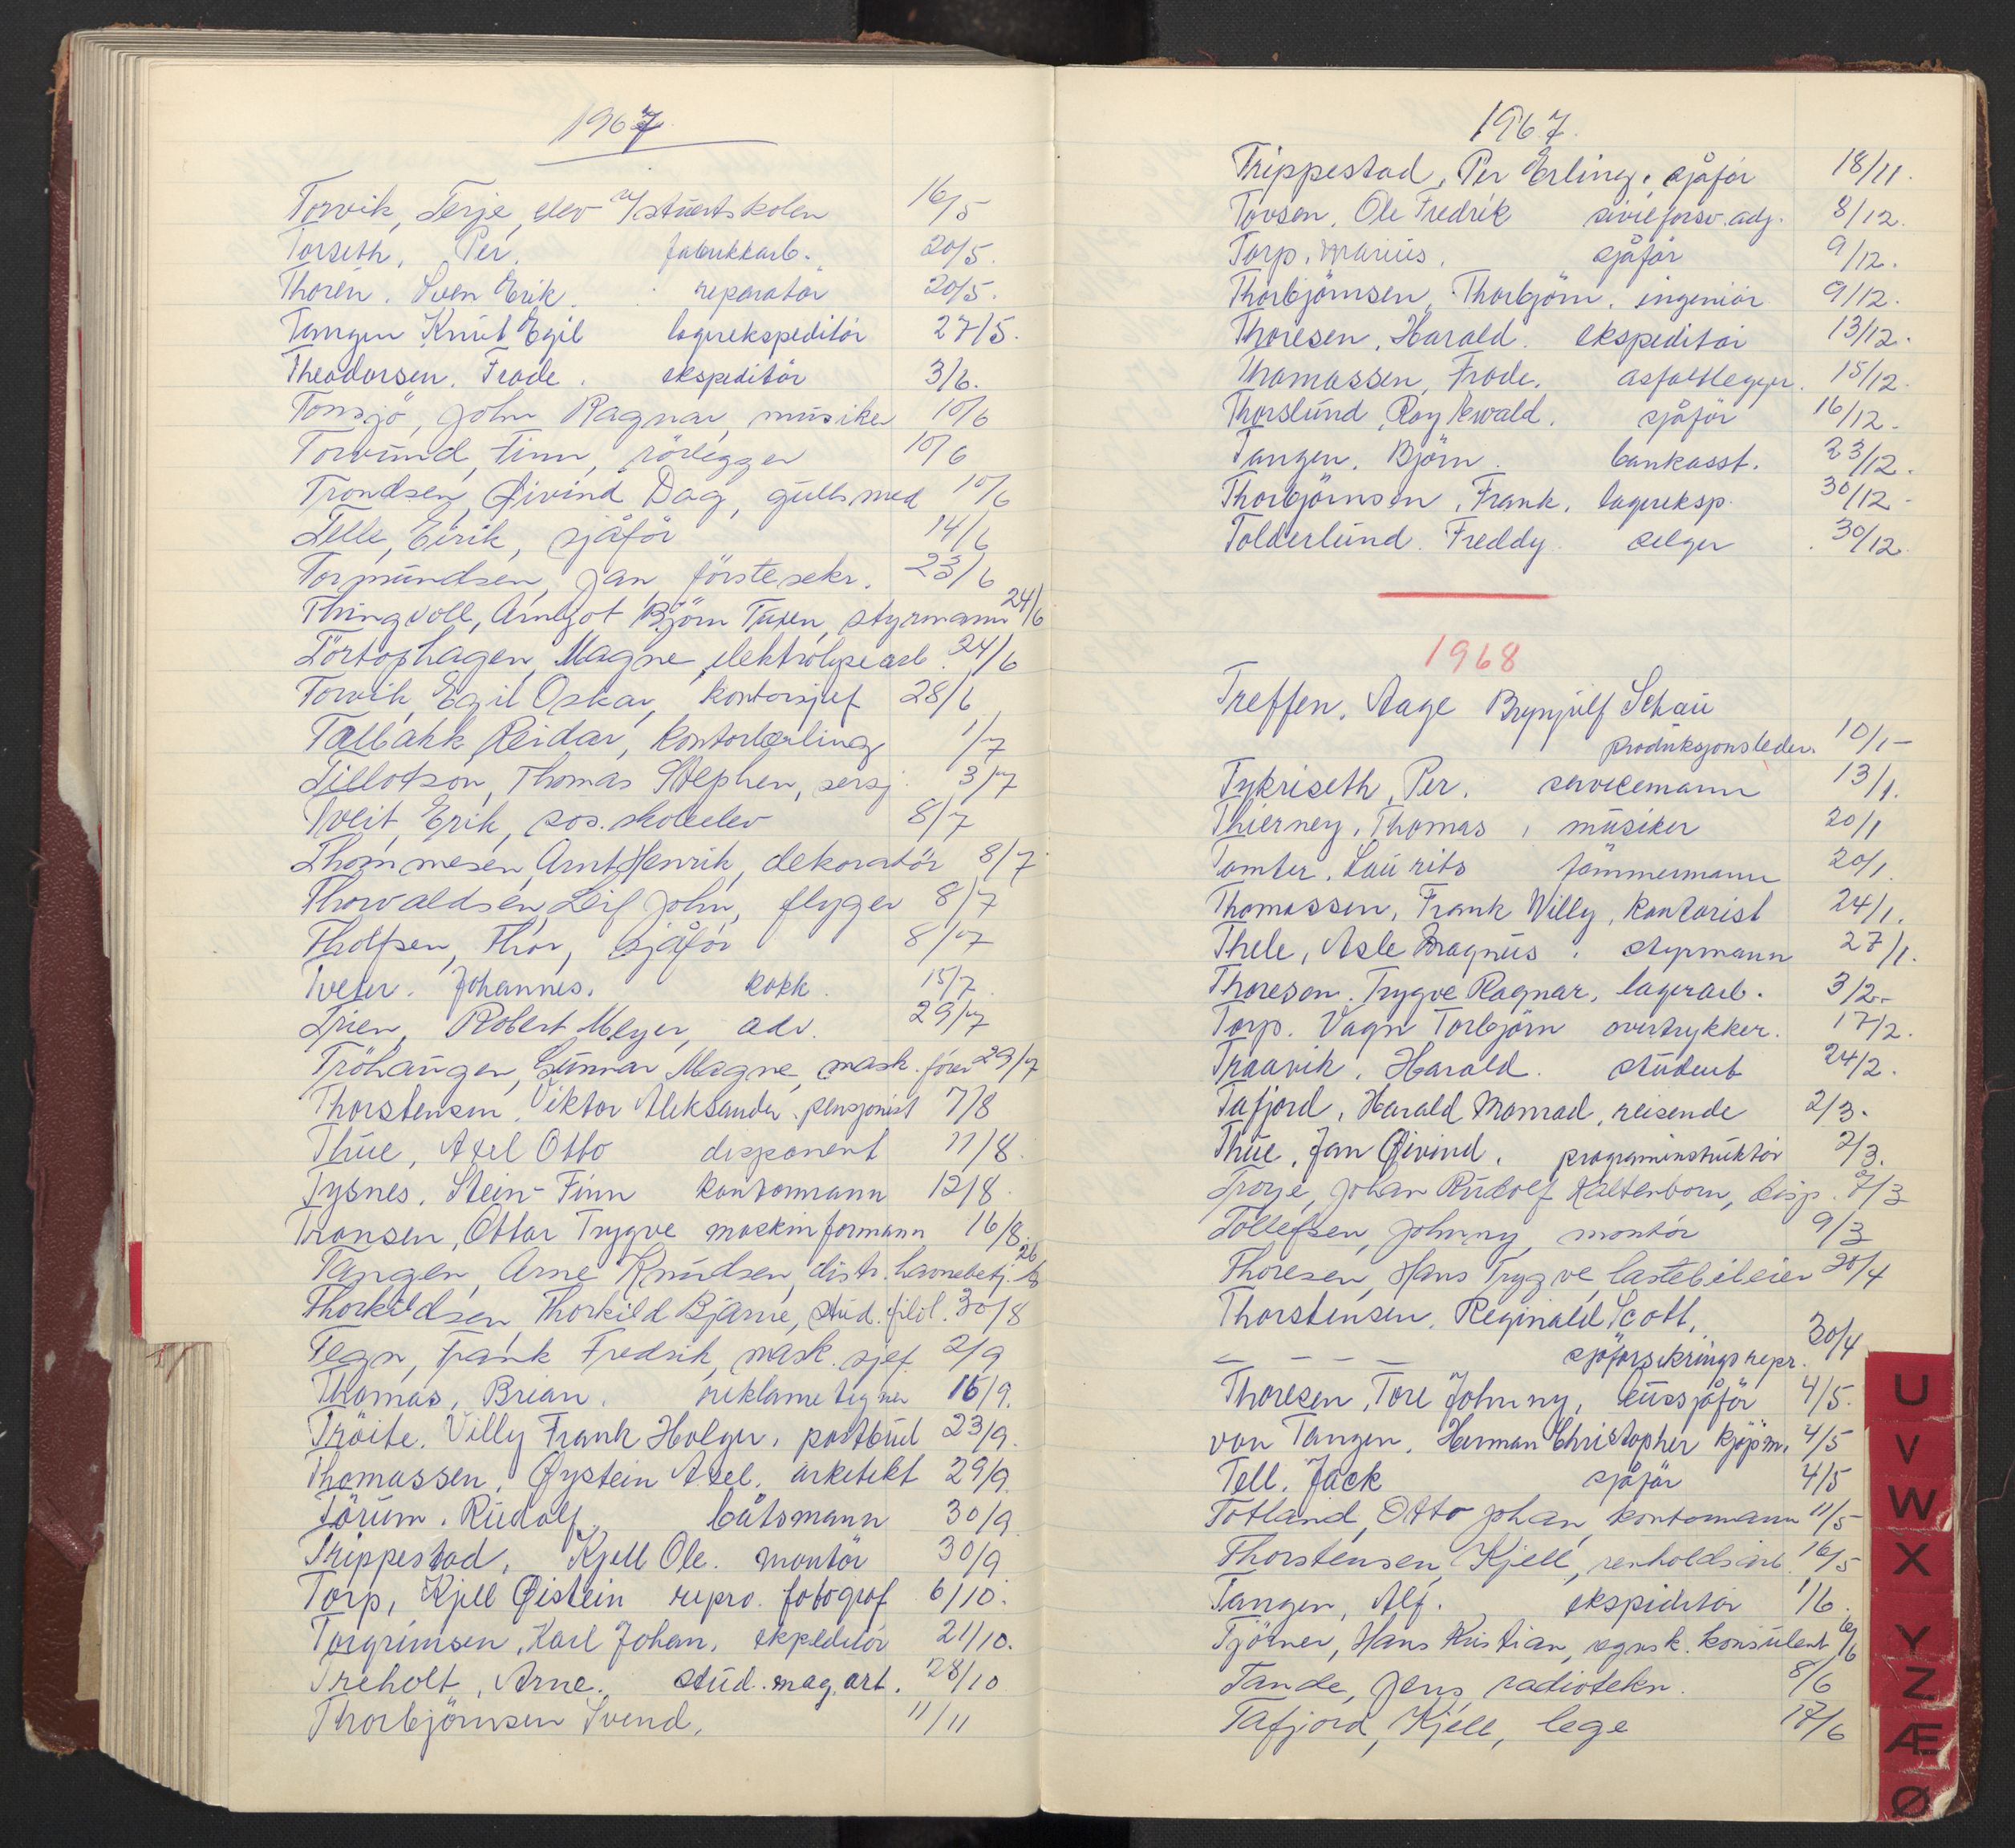 1967
Torvik, Terje, elev v/stuertskolen 16/5
Torseth, Per, fabrikkarb. 20/5.
Thorèn, Sven Erik. reparatör 20/5.
Tangen Knut Egil lagerekspeditör 27/5.
Theodorsen, Frode. ekspeditör 3/6.
Tonsjö, John Ragnar, musiker 10/6
Torvund, Finn, rörlegger 10/6
Trondsen, Øivind Dag, gullsmed 10/6
Telle, Eirik, sjåför 14/6
Tormundsen, Jan, förstesekr. 23/6
Thingvoll, Arneljot Björn Tuxen, styrmann 24/6
Törtophagen, Magne, elektrolysearb. 24/6
Torvik, Egil Oskar, kontorsjef 28/6
Talbakk, Reidar, kontorlærling 1/7
Tillotson, Thomas Stephen, sersj. 3/7
Tveit, Erik, sos. skoleelev 8/7
Thommesen, Arnt Henrik, dekoratör 8/7
Thorvaldsen, Leif John, flyger 8/7
Tholfsen, Thor, sjåför 8/7
Tveter. Johannes. kokk. 15/7
Trien, Robert Meyer, adv. 29/7
Tröhaugen, Gunnar Magne, mask. förer 29/7
Thorstensen, Viktor Aleksander. pensjonist 7/8
Thue, Axel Otto disponent 11/8.
Tysnes. Stein-Finn kontormann 12/8.
Transen, Ottar Trygve maskinformann 16/8.
Tangen, Arne Knudsen, distr. havnebetj. 26/8
Thorkildsen, Thorkild Bjarne, stud. filol. 30/8
Tegn, Frank Fredrik, mask. sjef 2/9
Thomas, Brian. reklametegner 16/9.
Tröite. Villy Frank Holger. postbud 23/9.
Thomassen, Øystein Axel. arkitekt 29/9.
Törum. Rudolf. båtsmann 30/9
Trippestad, Kjell Ole. montör 30/9
Torp, Kjell Øistein repro. fotograf 6/10.
Torgrimsen, Karl Johan. ekspeditör 21/10.
Treholt, Arne. stud. mag. art. 28/10
Thorbjörnsen Svend, 11/11
1967.
Trippestad, Per Erling. sjåför 18/11.
Tovsen, Ole Fredrik sivilforsv. adj. 8/12.
Torp, Marius, sjåför 9/12.
Thorbjörnsen, Thorbjörn. ingeniör 9/12.
Thoresen, Harald. ekspeditör 13/12.
Thomassen, Frode. asfaltlegger. 15/12.
Thorslund, Roy Ewald. sjåför 16/12.
Tangen. Björn. bankasst. 23/12.
Thorbjörnsen, Frank, lagereksp. 30/12.
Tolderlund. Freddy. selger 30/12.
1968
Treffen, Aage Brynjulf Schau
produksjonsleder. 10/1-
Tykriseth, Per. servicemann 13/1.
Thierney, Thomas, musiker 20/1
Tomter, Laurits tömmermann 20/1.
Thomassen, Frank Willy, kontorist 24/1.
Thele, Asle Magnus. styrmann 27/1.
Thoresen. Trygve Ragnar, lagerarb. 3/2.
Torp. Vagn Torbjörn overtrykker. 17/2.
Traavik. Harald. student 24/2.
Tafjord, Harald Monrad, reisende 2/3.
Thue, Jan Øivind. programinstruktör 2/3.
Troye, Johan Rudolf Kaltenborn, disp. 7/3
Tollefsen, Johnny, montör 9/3
Thoresen, Hans Trygve, lastebileier 20/4
Thorstensen, Reginald Scott,
— — — — sjöforsikringsrepr. 30/4
Thoresen, Tore Johnny, bussjåför 4/5.
von Tangen, Herman Christopher kjöpm. 4/5
Tell. Jack sjåför 4/5
Totland, Otto Johan, kontormann 11/5
Thorstensen, Kjell, renholdsarb. 16/5
Tangen, Alf. ekspeditör 1/6.
Tjörner, Hans Kristian, regnsk. konsulent 6/6
Tande, Jens, radiotekn. 8/6
Tafjord, Kjell, lege 17/6
U
V
W
X
Y
Z
Æ
Ø